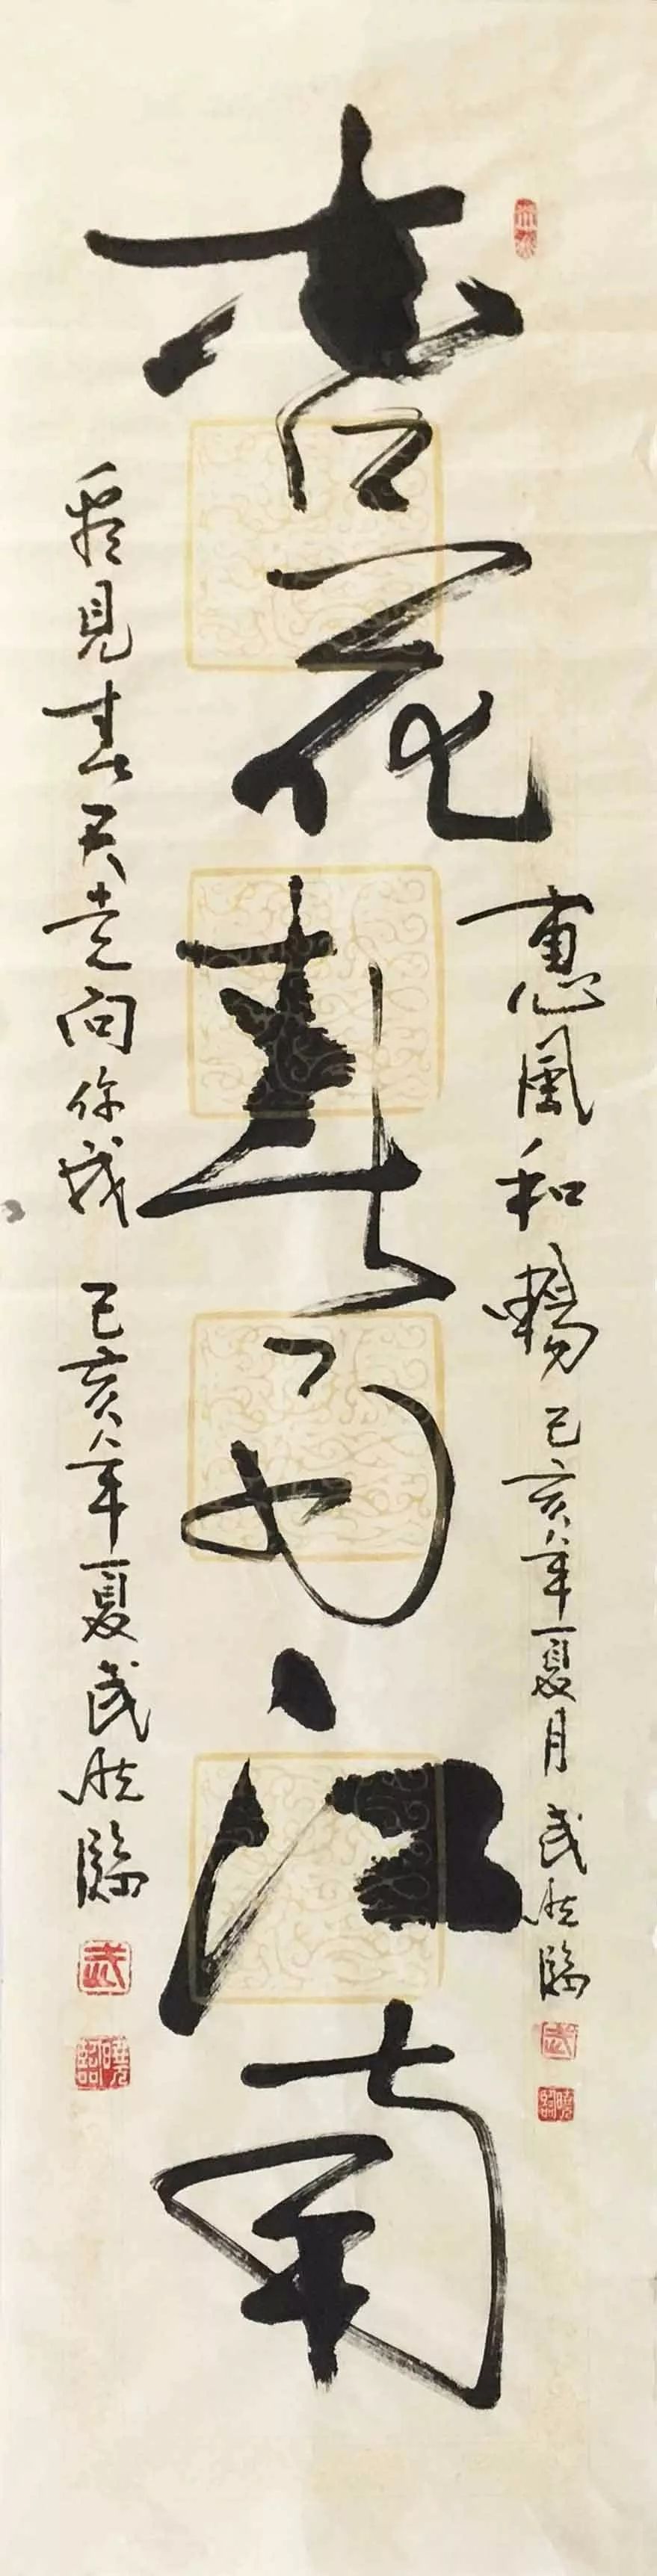 惠風和暢 己亥年夏月 武曉臨
杏花春雨江南
看見春天走向你我 己亥年夏 武曉臨
武
曉臨
武
曉臨